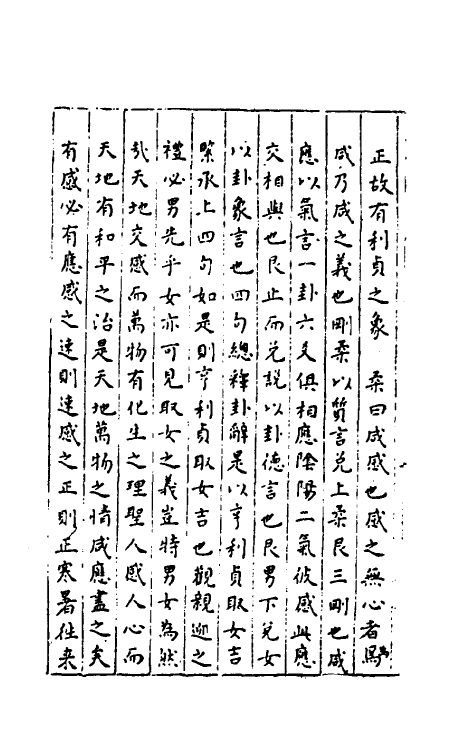 正故有利貞之象　彖曰咸感也感之無心者爲
咸乃咸之義也剛柔以質言兌上柔艮三剛也感
應以氣言一卦六爻俱相應陰陽二氣彼感此應
交相與也艮止而兌說以卦德言也艮男下兌女
以卦象言也四句總釋卦辭是以亨利貞取女吉
緊承上四句如是則亨利貞取女吉也觀親迎之
禮必男先乎女亦可見取女之義豈特男女為然
㢤天地交感而萬物有化生之理聖人感人心而
天地有和平之治是天地萬物之情咸應盡之矣
有感必有應感之速則速感之正則正寒暑徃来